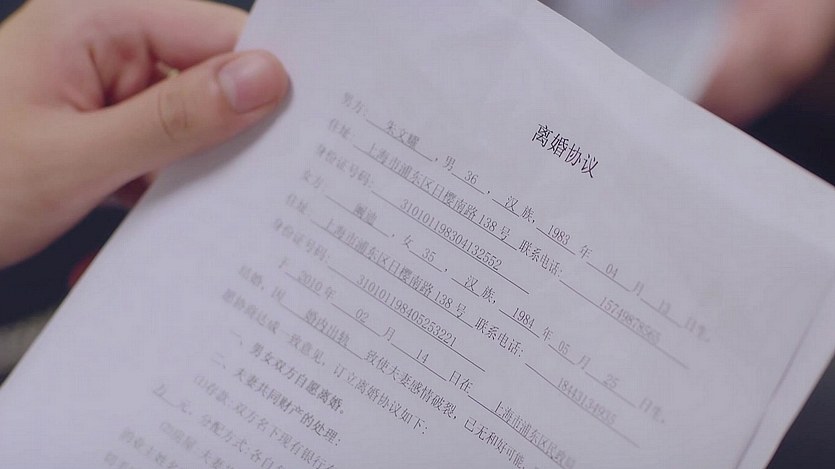 离婚协议
男方：朱文耀，男 36，汉 族，1983 年 04 月 13 日生，
住址：上海市浦东区日樱南路138号 联系电话：15749878565
身份证号码：310101198304132552
女方：，女 35，汉 族，1984 年 05 月 25 日生，
住址：上海市浦东区日樱南路138号 联系电话：18443134935
身份证号码：310101198405253221
于 2010 年 02 月 14 日在 上海市浦东区民政局
结婚，因 婚内出轨 致使夫妻感情破裂，已无和好可能，
愿协商达成一致意见，订立离婚协议如下：
一、男女双方自愿离婚。
二、夫妻共同财产的处理：
①存款：双方名下现有银行
元，分配方式：各自